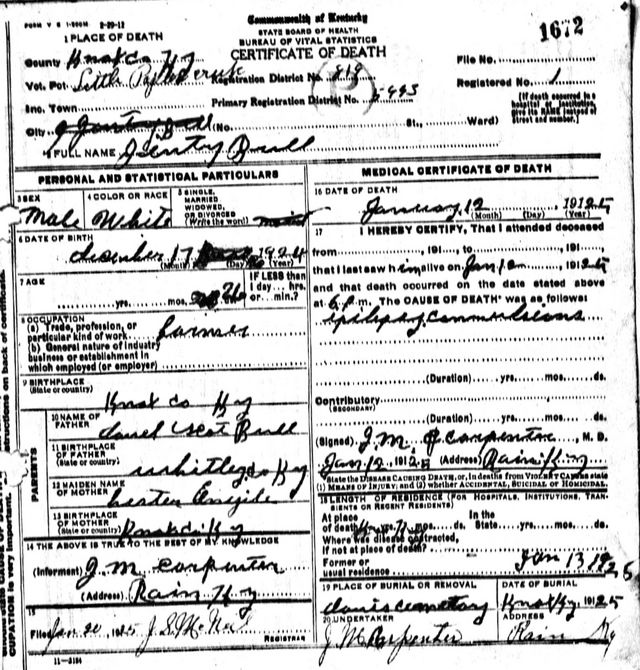 FORM V S 1-500M 2-20-12
Commonwealth of Kentucky
STATE BOARD OF HEALTH
BUREAU OF VITAL STATISTICS
CERTIFICATE OF DEATH
1672
1 PLACE OF DEATH
County Knox Co Ky
Vot. Pct. Little
Registration District No. 819
File No.
Inc. Town
Primary Registration District No. 5993
Registered No. 1
[If death occurred in a hospital or institution, give its NAME instead of street and number.]
City
(No. St., Ward)
2 FULL NAME Gentry Bull
PERSONAL AND STATISTICAL PARTICULARS
3 SEX Male
4 COLOR OR RACE White
5 SINGLE, MARRIED WIDOWED, OR DIVORCED (Write the word)
6 DATE OF BIRTH
December 17 1924
(Month) (Day) (Year)
7 AGE
yrs. mos. 26
IF LESS than 1 day... hrs. or... min.?
8 OCCUPATION
(a) Trade, profession, or particular kind of work farmer
(b) General nature of industry business or establishment in which employed (or employer)
9 BIRTHPLACE
(State or country)
Knox co Ky
PARENTS
10 NAME OF FATHER
Bull
11 BIRTHPLACE OF FATHER
(State or country) whitley co Ky
12 MAIDEN NAME OF MOTHER
13 BIRTHPLACE OF MOTHER
(State or country) Knox co Ky
14 THE ABOVE IS TRUE TO THE BEST OF MY KNOWLEDGE
(Informant) J. M. Carpenter
(Address) Rain Ky
15
Filed Jan 20, 1925 J. S. McNeil
REGISTRAR
11-3184
MEDICAL CERTIFICATE OF DEATH
16 DATE OF DEATH
January 12 1925
(Month) (Day) (Year)
17 I HEREBY CERTIFY, That I attended deceased
from 191 , to 191 ,
that I last saw him alive on Jan 12 1925
and that death occurred on the date stated above
at 6 P.m. The CAUSE OF DEATH* was as follows:
epilepsy convulsions
(Duration) yrs. mos. ds.
Contributory
(SECONDARY)
(Duration) yrs. mos. ds.
(Signed) J. M. Carpenter, M. D.
Jan 12, 1925 (Address) Rain Ky
*State the DISEASE CAUSING DEATH, or, in deaths from VIOLENT CAUSES state (1) MEANS OF INJURY; and (2) whether ACCIDENTAL, SUICIDAL OR HOMICIDAL
18 LENGTH OF RESIDENCE (FOR HOSPITALS, INSTITUTIONS, TRANSIENTS OR RECENT RESIDENTS)
At place of death yrs. mos. ds.
In the State yrs. mos. ds.
Where was disease contracted,
if not at place of death?
Former or usual residence
Jan 13 1925
19 PLACE OF BURIAL OR REMOVAL
DATE OF BURIAL
cemetary
Knox Ky, 1925
20 UNDERTAKER
ADDRESS
J M Carpenter
Rain Ky